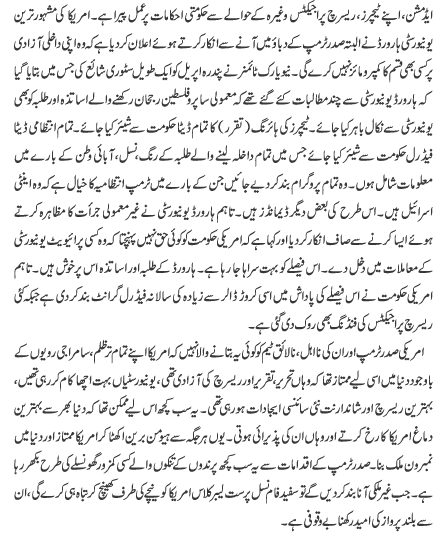 ایڈمشن، اپنے ٹیچرز، ریسرچ پراجیکٹس وغیرہ کے حوالے سے حکومتی احکامات پر عمل پیرا ہے۔ امریکا کی مشہور ترین
یونیورسٹی ہارورڈ نے البتہ صدر ٹرمپ کے دباؤ میں آنے سے انکار کرتے ہوئے اعلان کر دیا ہے کہ وہ اپنی داخلی آزادی
پر کسی بھی قسم کا کمپرومائز نہیں کرے گی۔ نیویارک ٹائمز نے پندرہ اپریل کو ایک طویل سٹوری شائع کی جس میں بتایا گیا
کہ ہارورڈ یونیورسٹی سے چند مطالبات کئے گئے تھے کہ معمولی سا پرو فلسطین رجحان رکھنے والے اساتذہ اور طلبہ کو بھی
یونیورسٹی سے نکال باہر کیا جائے۔ ٹیچرز کی ہائرنگ (تقرر) کا تمام ڈیٹا حکومت سے شیئر کیا جائے۔ تمام انتظامی ڈیٹا
فیڈرل حکومت سے شیئر کیا جائے جس میں تمام داخلہ لینے والے طلبہ کے رنگ، نسل، آبائی وطن کے بارے میں
معلومات شامل ہوں۔ وہ تمام پروگرام بند کر دیے جائیں جن کے بارے میں ٹرمپ انتظامیہ کا خیال ہے کہ وہ اینٹی
اسرائیل ہیں۔ اس طرح کی بعض دیگر ڈیمانڈز ہیں۔ تاہم ہارورڈ یونیورسٹی نے غیر معمولی جرأت کا مظاہرہ کرتے
ہوئے ایسا کرنے سے صاف انکار کر دیا اور کہا ہے کہ امریکی حکومت کو کوئی حق نہیں پہنچتا کہ وہ کسی پرائیویٹ یونیورسٹی
کے معاملات میں دخل دے۔ اس فیصلے کو بہت سراہا جا رہا ہے۔ ہارورڈ کے طلبہ اور اساتذہ اس پر خوش ہیں۔ تاہم
امریکی حکومت نے اس فیصلے کی پاداش میں اسی کروڑ ڈالر سے زیادہ کی سالانہ فیڈرل گرانٹ بند کر دی ہے جبکہ کئی
ریسرچ پراجیکٹس کی فنڈنگ بھی روک دی گئی ہے۔
امریکی صدر ٹرمپ اور ان کی نااہل، نالائق ٹیم کو کوئی یہ بتانے والا نہیں کہ امریکا اپنے تمام تر ظلم، سامراجی رویوں کے
باوجود دنیا میں اسی لیے ممتاز تھا کہ وہاں تحریر، تقریر اور ریسرچ کی آزادی تھی، یونیورسٹیاں بہت اچھا کام کر رہی تھیں،
بہترین ریسرچ اور شاندار نت نئی سائنسی ایجادات ہو رہی تھیں۔ یہ سب کچھ اس لیے ممکن تھا کہ دنیا بھر سے بہترین
دماغ امریکا کا رخ کرتے اور وہاں ان کی پذیرائی ہوتی۔ یوں ہر جگہ سے ہیومن برین اکٹھا کر امریکا ممتاز اور دنیا میں
نمبرون ملک بنا۔ صدر ٹرمپ کے اقدامات سے یہ سب کچھ پرندوں کے تنکوں والے کسی کمزور گھونسلے کی طرح بکھر رہا
ہے۔ جب غیر ملکی آنا بند کر دیں گے تو سفید فام نسل پرست لیبر کلاس امریکا کو نیچے کی طرف کھینچ کر تباہ ہی کرے گی، ان
سے بلند پرواز کی امید رکھنا بے وقوفی ہے۔